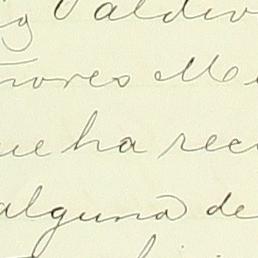 ig Valdiv
ñores M
ue ha rec
alguna de